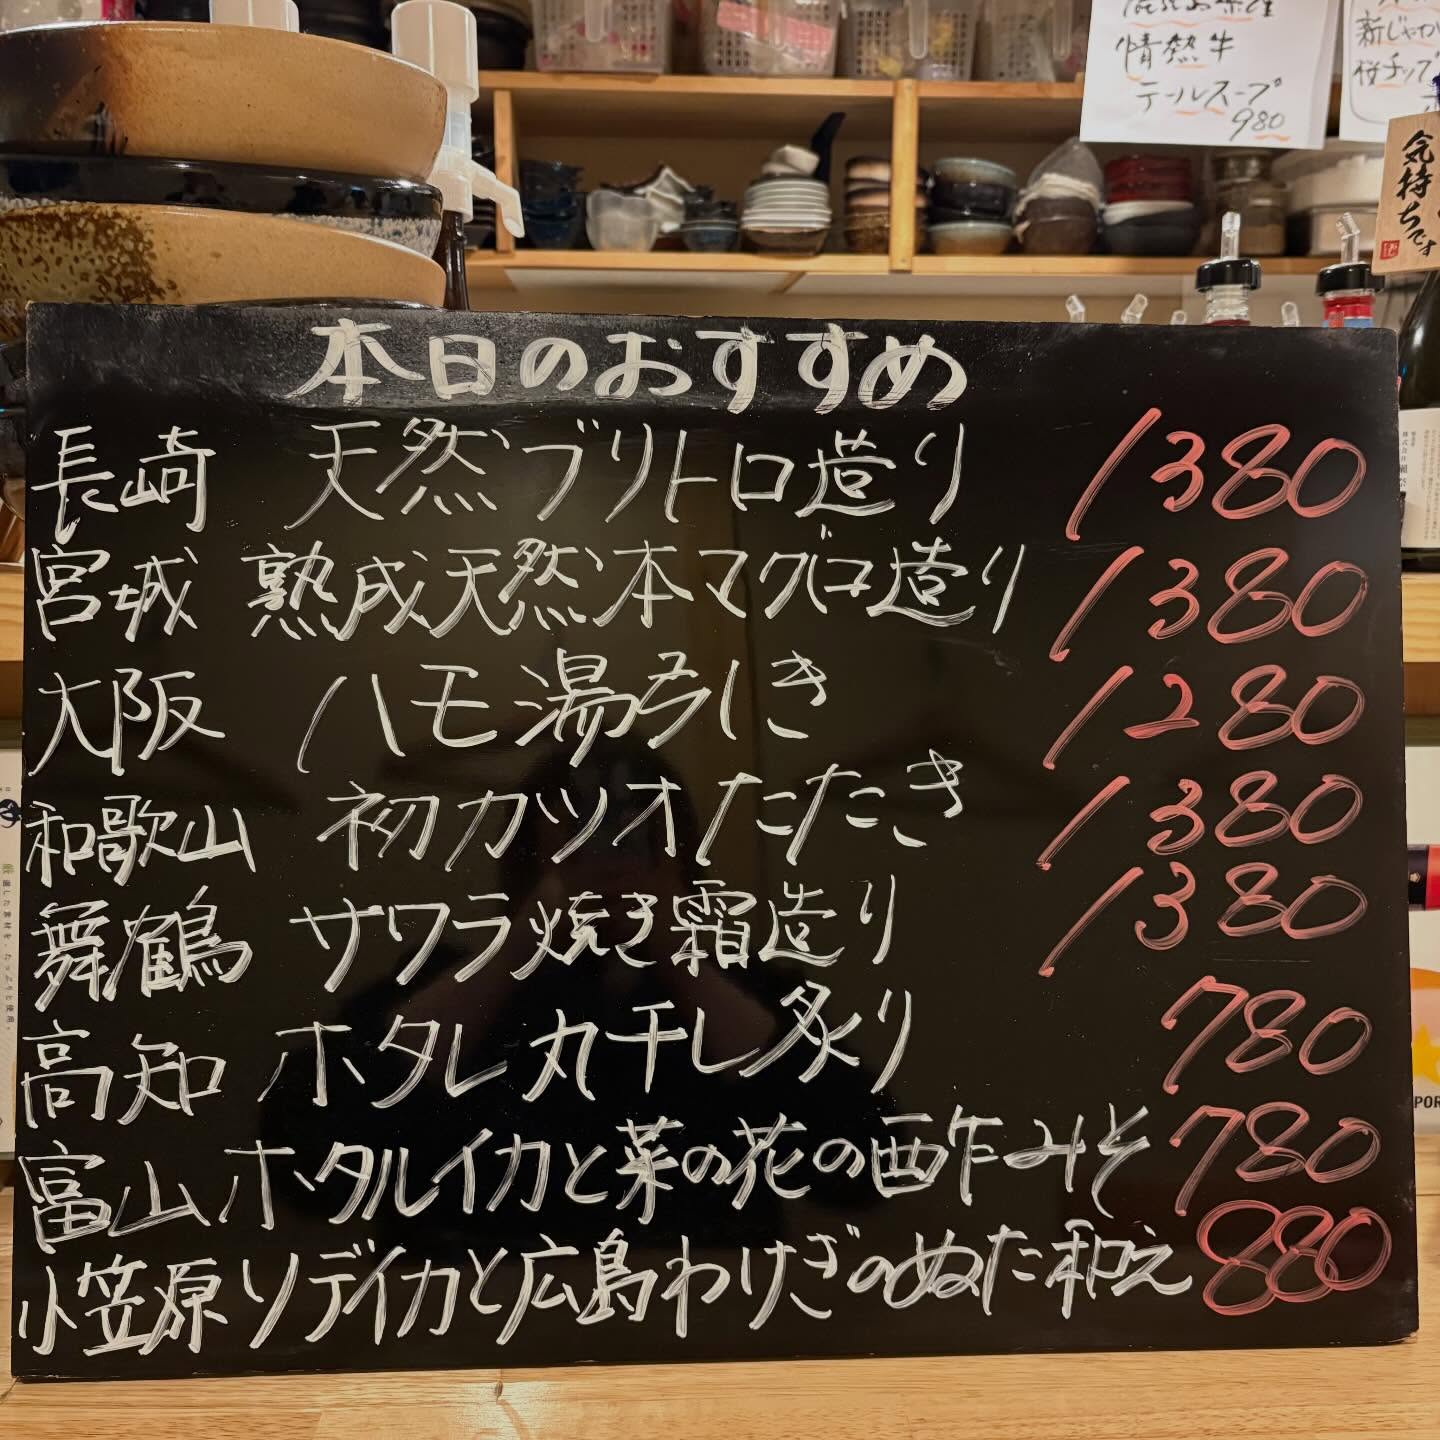 情熱牛
テールスープ
980
新じゃが
桜チップ
気持ちです
本日のおすすめ
長崎 天然ブリトロ造り 1380
宮城 熟成天然本マグロ造り 1380
大阪 ハモ湯引き 1280
和歌山 初カツオたたき 1380
舞鶴 サワラ焼き霜造り 1380
高知 ホタレ丸干し炙り 780
富山 ホタルイカと菜の花の酢みそ 780
小笠原 ソデイカと広島わけぎのぬた和え 880